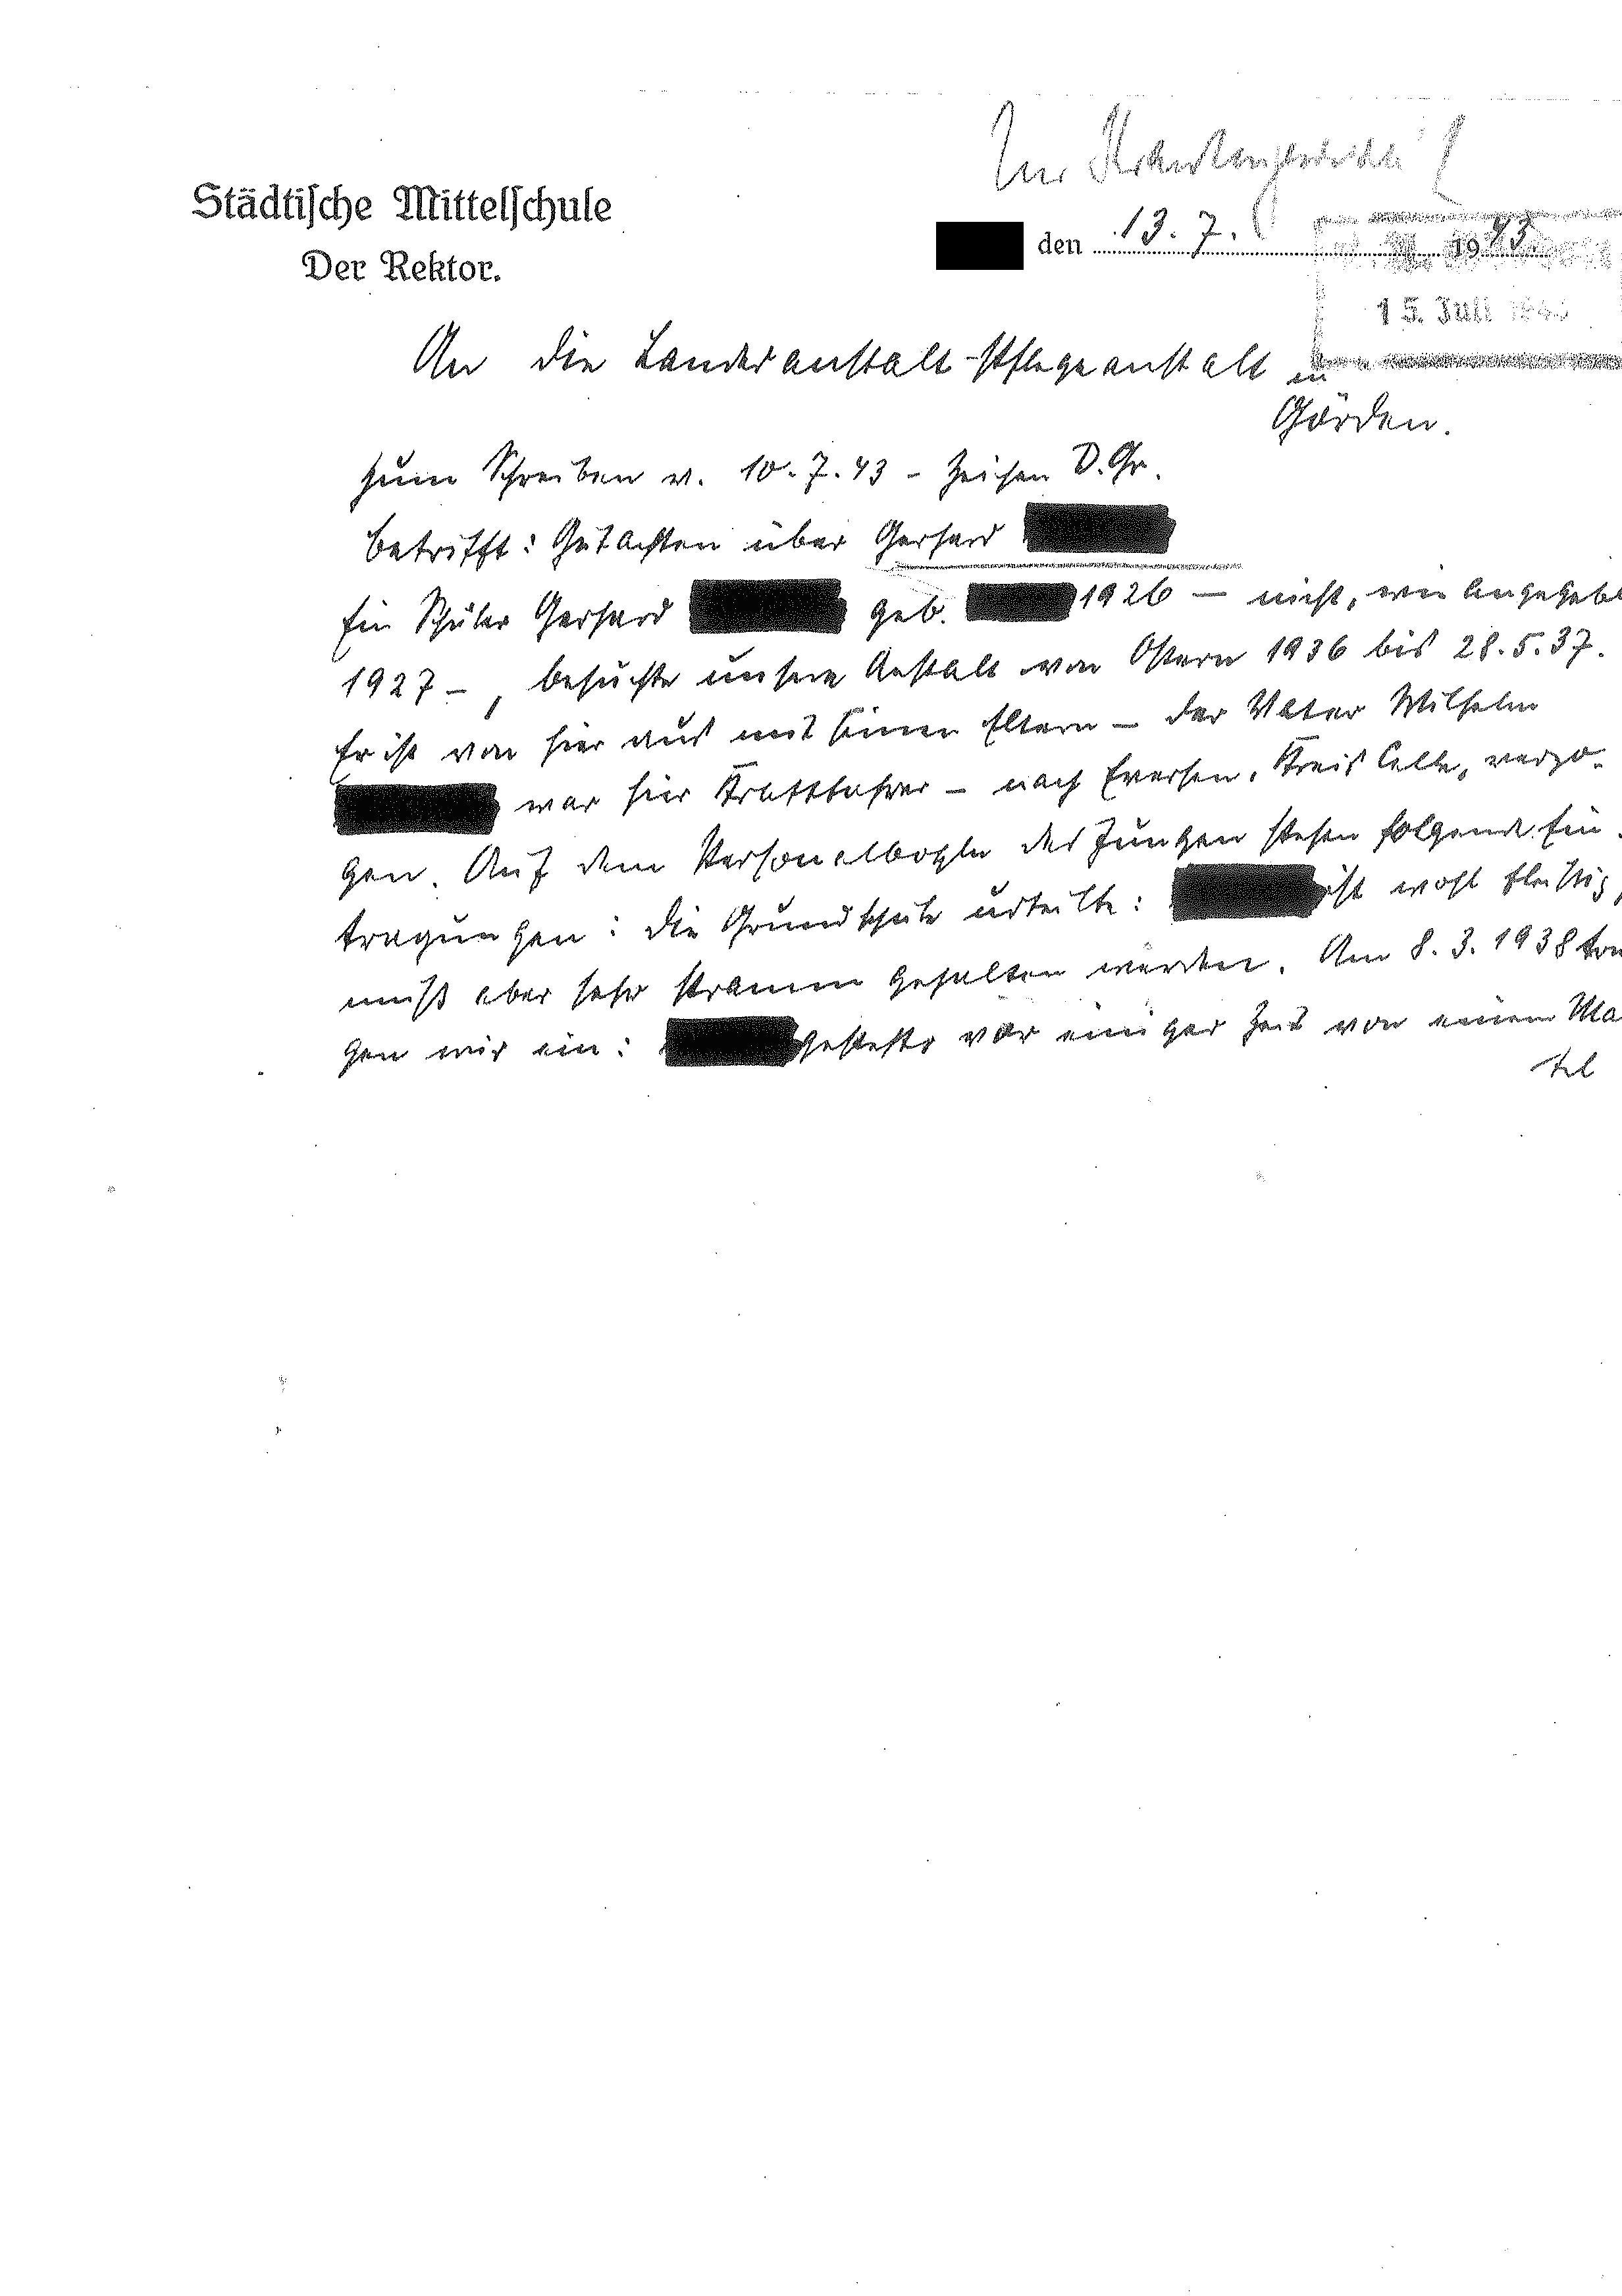 Zur Krankengeschichte!
Städtische Mittelschule
Der Rektor.
den 13. 7. 1943.
15. Juli 1943
An die Landesanstalt-Pflegeanstalt in
Görden.
Zum Schreiben v. 10.7.43 – Zeichen D. Gr.
Betrifft: Gutachten über Gerhard
Ein Schüler Gerhard geb. 1926 — nicht, wie angegebe
1927 –, besuchte unsere Anstalt von Ostern 1936 bis 28.5.37.
Er ist von hier aus mit seinen Eltern – der Vater Wilhelm
war hier Kraftfahrer – nach Eversen, Kreis Celle, verzo-
gen. Auf dem Personalbogen des Jungen stehen folgende Ein-
tragungen: Die Grundschule urteilte: ist wohl fleißig,
muß aber sehr stramm gehalten werden. Am 8.3.1938 tru
gen wir ein: gestehts vor einiger Zeit von einem Ma
tel